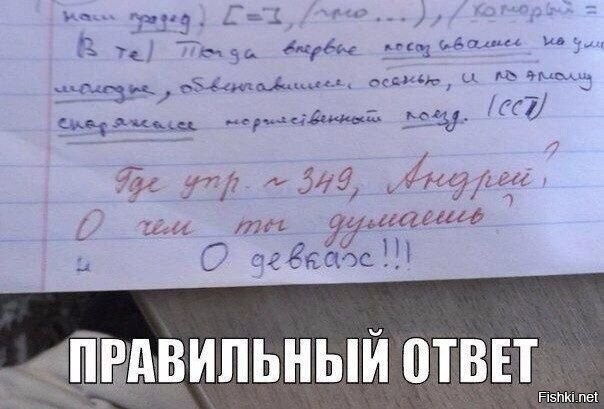 наш прадед) [=], (что ...), (который =
(В те) Тогда впервые показывались на ули
молодые, обвенчавшиеся осенью, и по этому
снаряжался торжественный поезд. (ССП)
Где упр. ~ 349, Андрей?
О чем ты думаешь?
и О девках!!!
ПРАВИЛЬНЫЙ ОТВЕТ
Fishki.net